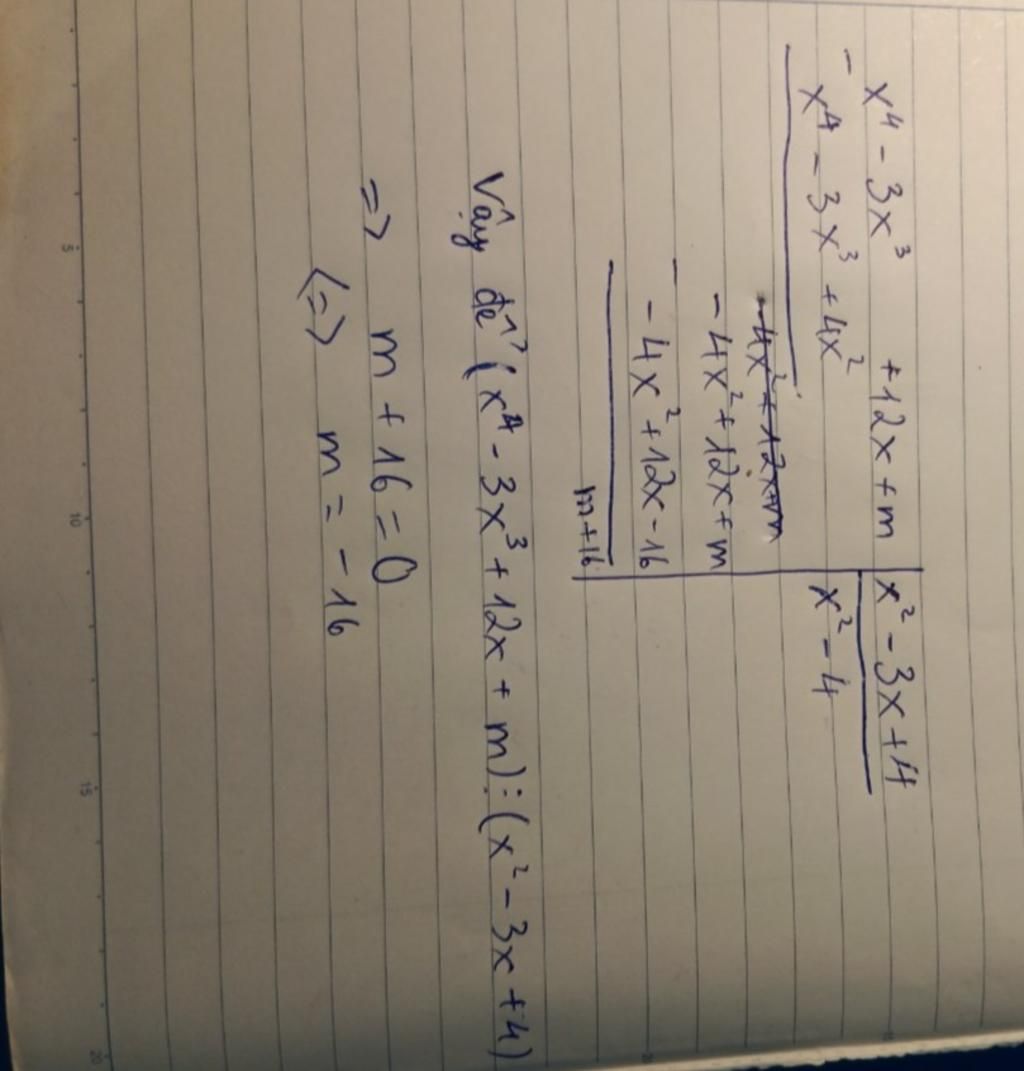 x⁴ - 3x³ + 12x + m | x² - 3x + 4
- x⁴ - 3x³ + 4x² | x² - 4
- 4x² + 12x + m
- 4x² + 12x + m
- - 4x² + 12x - 16
m + 16
Vậy để (x⁴ - 3x³ + 12x + m) : (x² - 3x + 4)
=> m + 16 = 0
<=> m = - 16
5
10
15
20